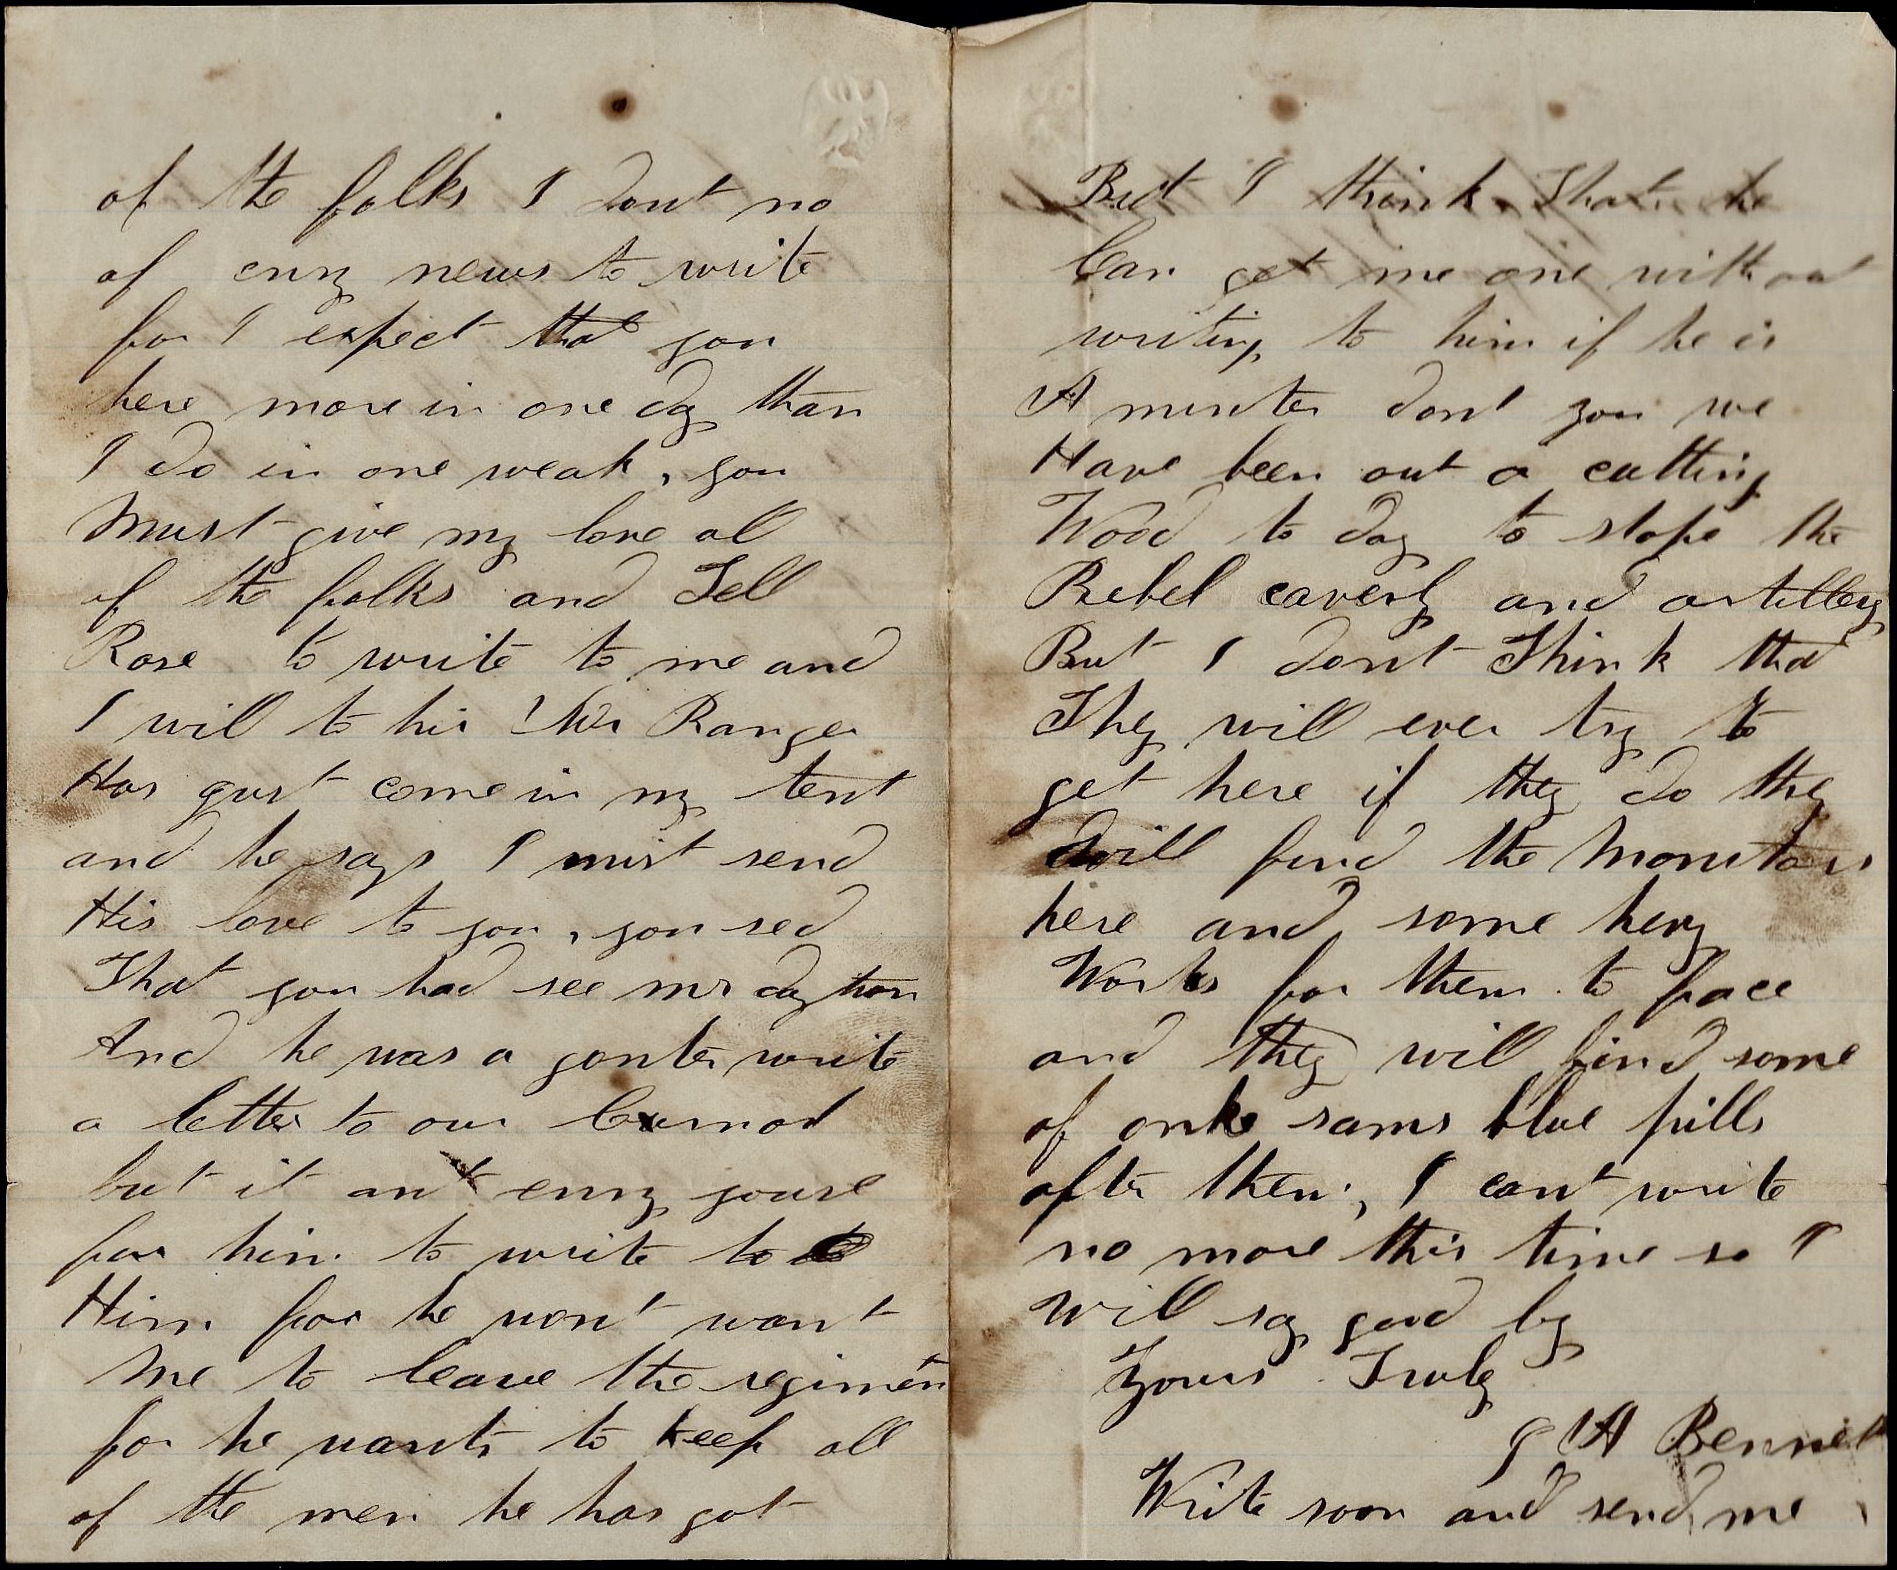 of the folks I dont no
of enny news to write
for I expect that you
here more in one day than
I do in one weak, you
Must give my love all
of the folks and Tell
Rose to write to me and
I wil to his Mr Ranger
Has gust come in my tent
and he says I must send
His love to you, you sed
That you had see mr dayton
And he was a gonter write
a letter to our
but it ant enny youse
for him to write to
Him for he wont want
Me to leave the regiment
for he wants to keep all
of the men he has got
But I think That he
Can get me one without
writing to him if he is
A minter dont you we
Have been out a cutting
Wood to day to stope the
Rebel caverly and artillery
But I dont Think that
They will ever try to
get here if they do they
will find the Monitors
here and some hevy
Works for them to face
and they will find some
of onke sams blue pills
after them, I cant write
no more this time so I
Will say good by
Yours Truly
G A Bennett
Write soon and send me